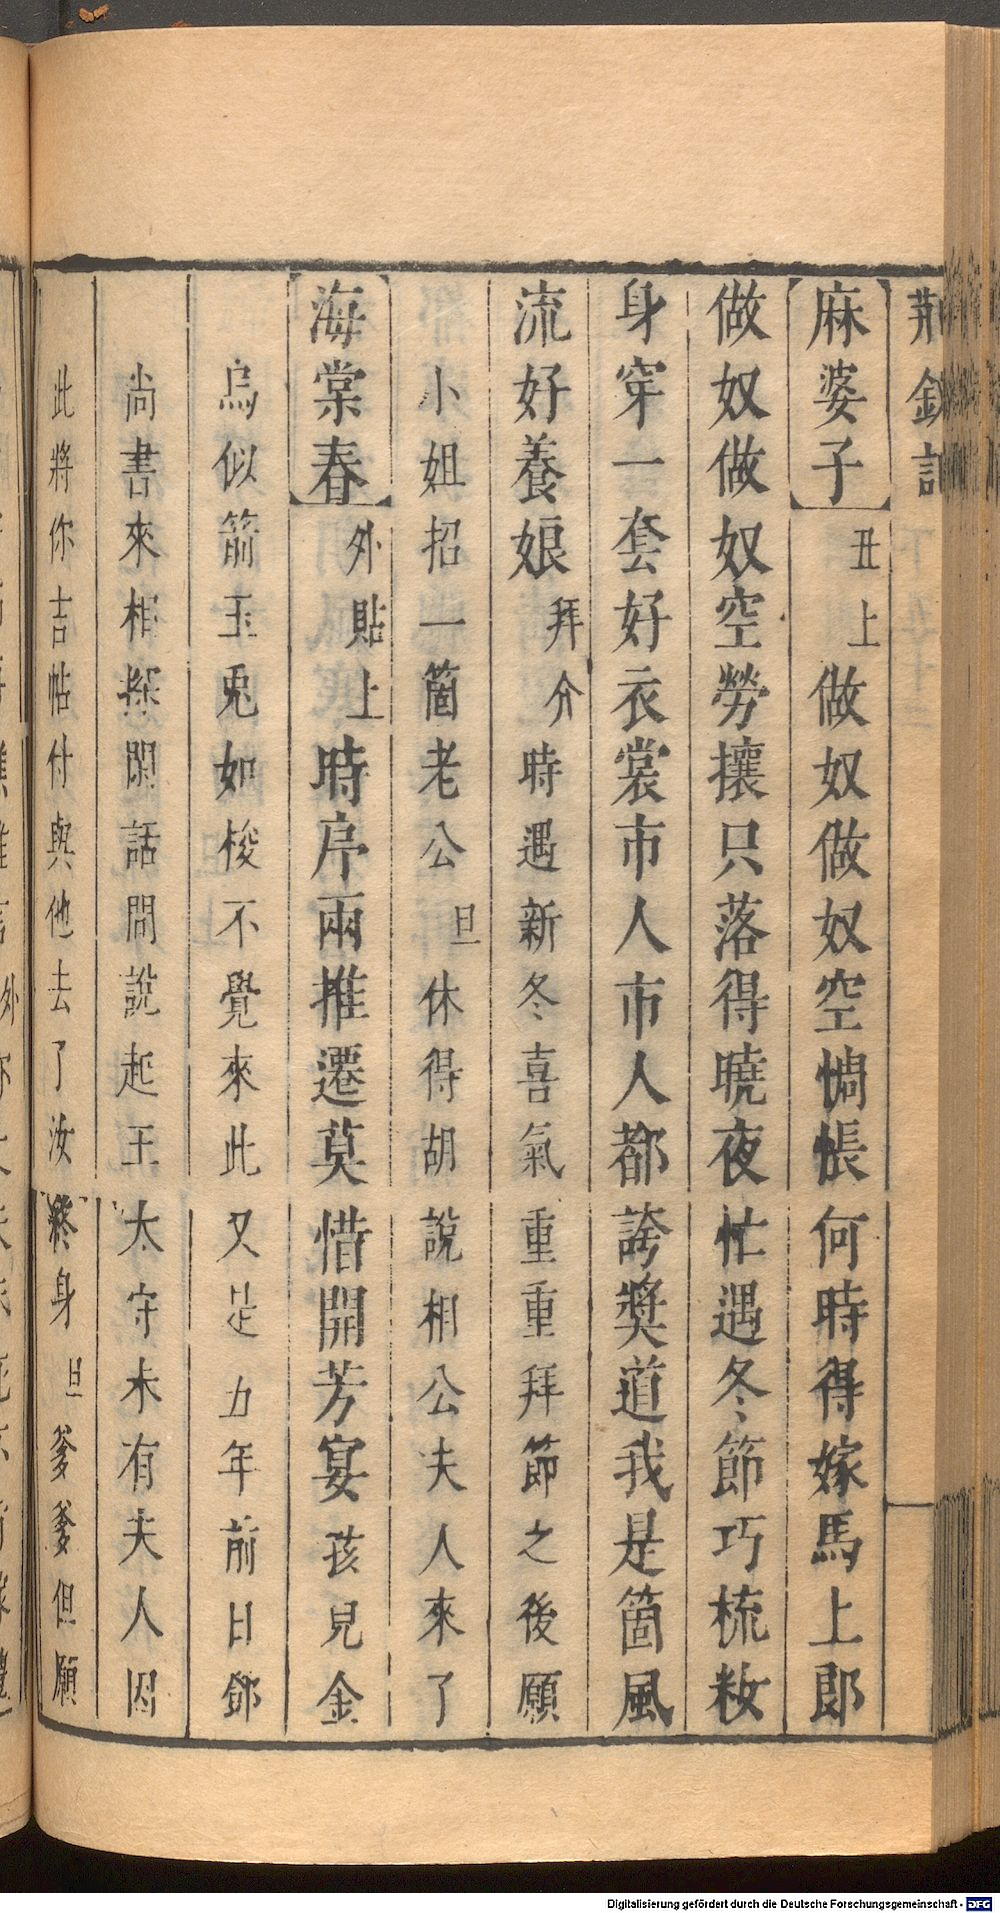 荆釵記
麻婆子 丑上 做奴做奴空惆悵何時得嫁馬上郎
做奴做奴空勞攘只落得曉夜忙遇冬節巧梳粧
身穿一套好衣裳市人市人都誇獎道我是箇風
流好養娘 拜介 時遇新冬喜氣重重拜節之後願
小姐招一箇老公 旦 休得胡說相公夫人來了
海棠春 外貼上 時序兩推遷莫惜開芳宴孩兒金
烏似箭玉兎如梭不覺來此又是五年前日鄧
尚書來相探閑話間說起王太守未有夫人因
此將你吉帖付與他去了汝終身 旦 爹爹但願
Digitalisierung gefördert durch die Deutsche Forschungsgemeinschaft - DFG